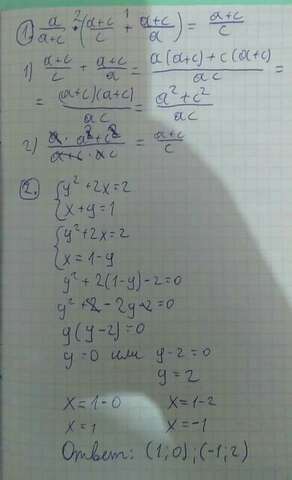 1. a/(a+c) · ((a+c)/c + (a+c)/a) = (a+c)/c
1) (a+c)/c + (a+c)/a = (a(a+c)+c(a+c))/ac =
= (a+c)(a+c)/ac = (a²+c²)/ac
2) (a · a²+c²)/(a+c · ac) = (a+c)/c
2. { y²+2x=2
{ x+y=1
{ y²+2x=2
{ x=1-y
y²+2(1-y)-2=0
y²+2-2y-2=0
y(y-2)=0
y=0 или y-2=0
y=2
x=1-0 x=1-2
x=1 x=-1
Ответ: (1;0);(-1;2)